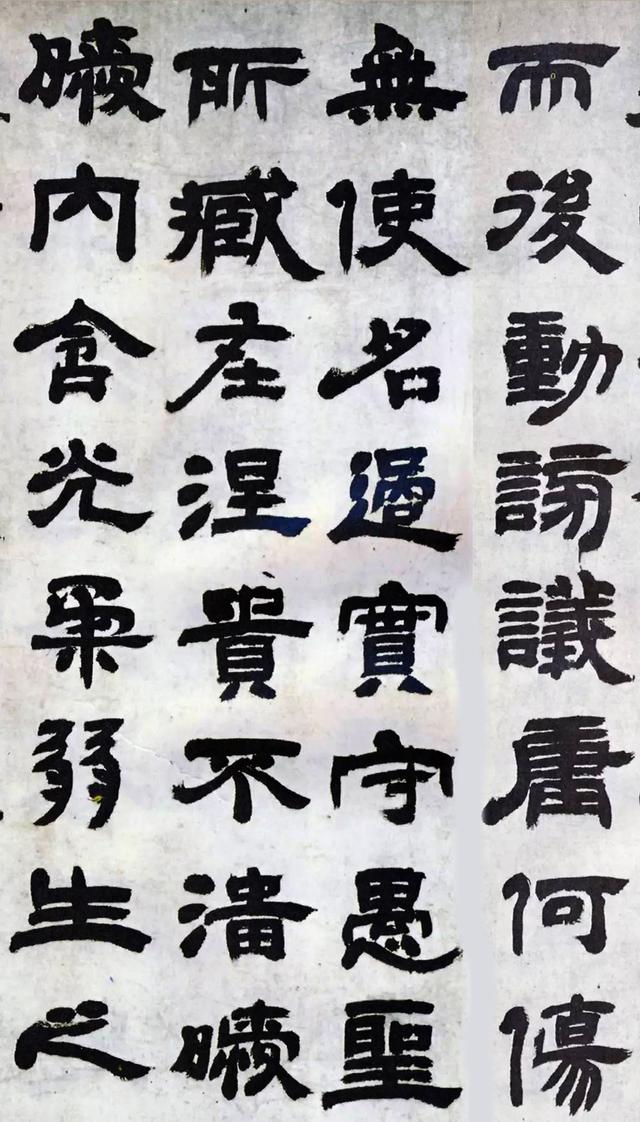 而後動謗議庸何傷
無使名過實守愚聖
所臧在涅貴不淄曖
曖內含光柔弱生之